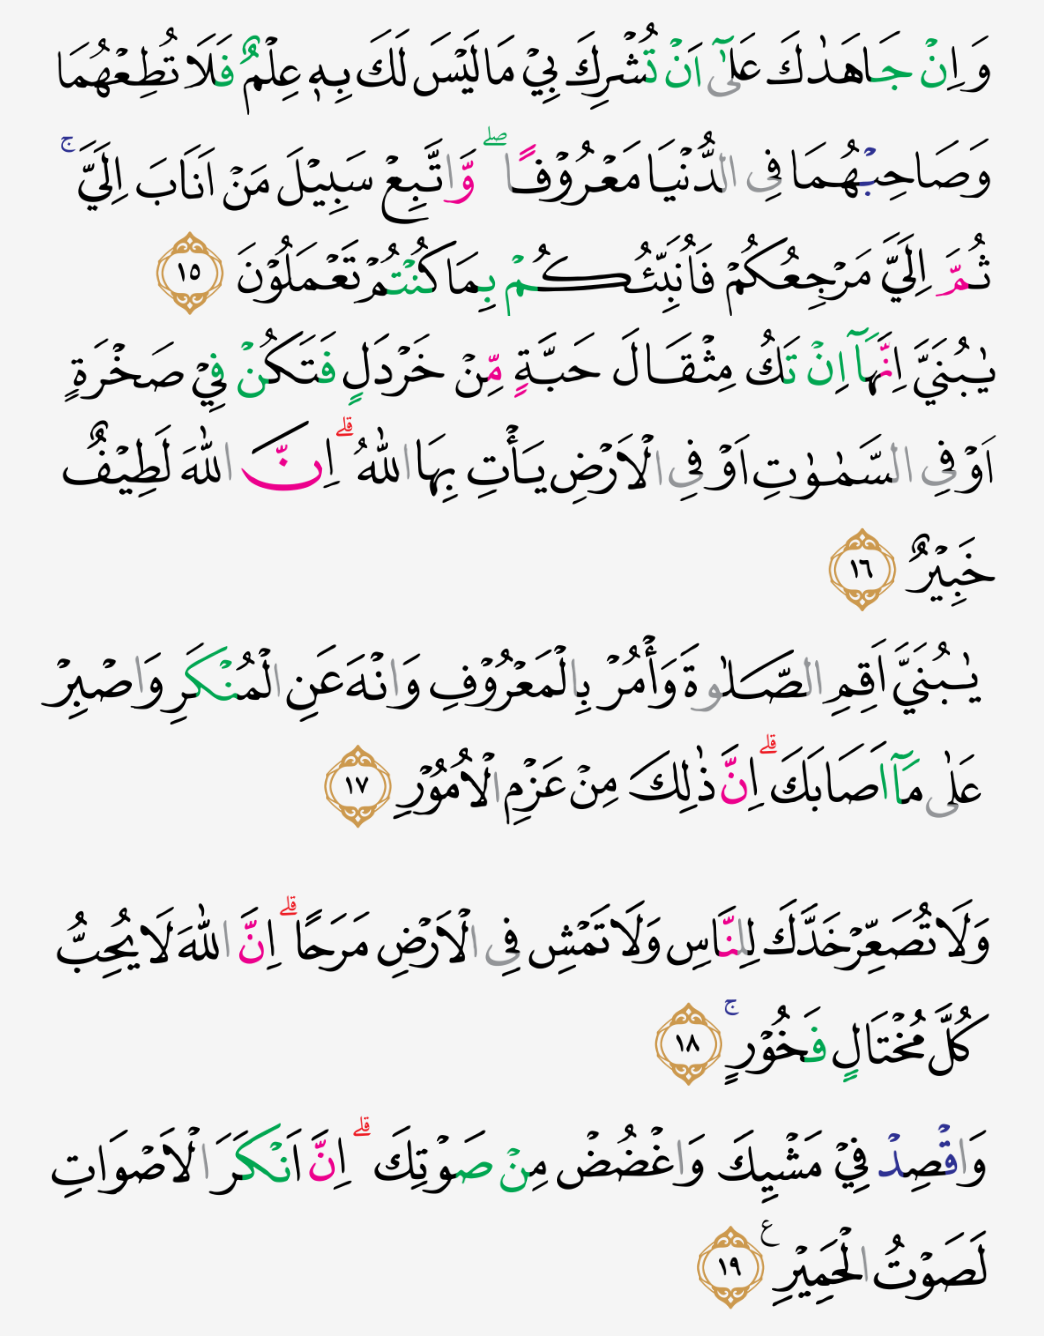 وَاِنْ جَاهَدٰكَ عَلٰٓى اَنْ تُشْرِكَ بِيْ مَا لَيْسَ لَكَ بِهٖ عِلْمٌ فَلَا تُطِعْهُمَا
وَصَاحِبْهُمَا فِى الدُّنْيَا مَعْرُوْفًا ۖ وَّاتَّبِعْ سَبِيْلَ مَنْ اَنَابَ اِلَيَّ ۚ
ثُمَّ اِلَيَّ مَرْجِعُكُمْ فَاُنَبِّئُكُمْ بِمَا كُنْتُمْ تَعْمَلُوْنَ ١٥
يٰبُنَيَّ اِنَّهَآ اِنْ تَكُ مِثْقَالَ حَبَّةٍ مِّنْ خَرْدَلٍ فَتَكُنْ فِيْ صَخْرَةٍ
اَوْ فِى السَّمٰوٰتِ اَوْ فِى الْاَرْضِ يَأْتِ بِهَا اللّٰهُ ۗ اِنَّ اللّٰهَ لَطِيْفٌ
خَبِيْرٌ ١٦
يٰبُنَيَّ اَقِمِ الصَّلٰوةَ وَأْمُرْ بِالْمَعْرُوْفِ وَانْهَ عَنِ الْمُنْكَرِ وَاصْبِرْ
عَلٰى مَآ اَصَابَكَ ۗ اِنَّ ذٰلِكَ مِنْ عَزْمِ الْاُمُوْرِ ١٧
وَلَا تُصَعِّرْ خَدَّكَ لِلنَّاسِ وَلَا تَمْشِ فِى الْاَرْضِ مَرَحًا ۗ اِنَّ اللّٰهَ لَا يُحِبُّ
كُلَّ مُخْتَالٍ فَخُوْرٍ ۚ ١٨
وَاقْصِدْ فِيْ مَشْيِكَ وَاغْضُضْ مِنْ صَوْتِكَ ۗ اِنَّ اَنْكَرَ الْاَصْوَاتِ
لَصَوْتُ الْحَمِيْرِ ࣖ ١٩